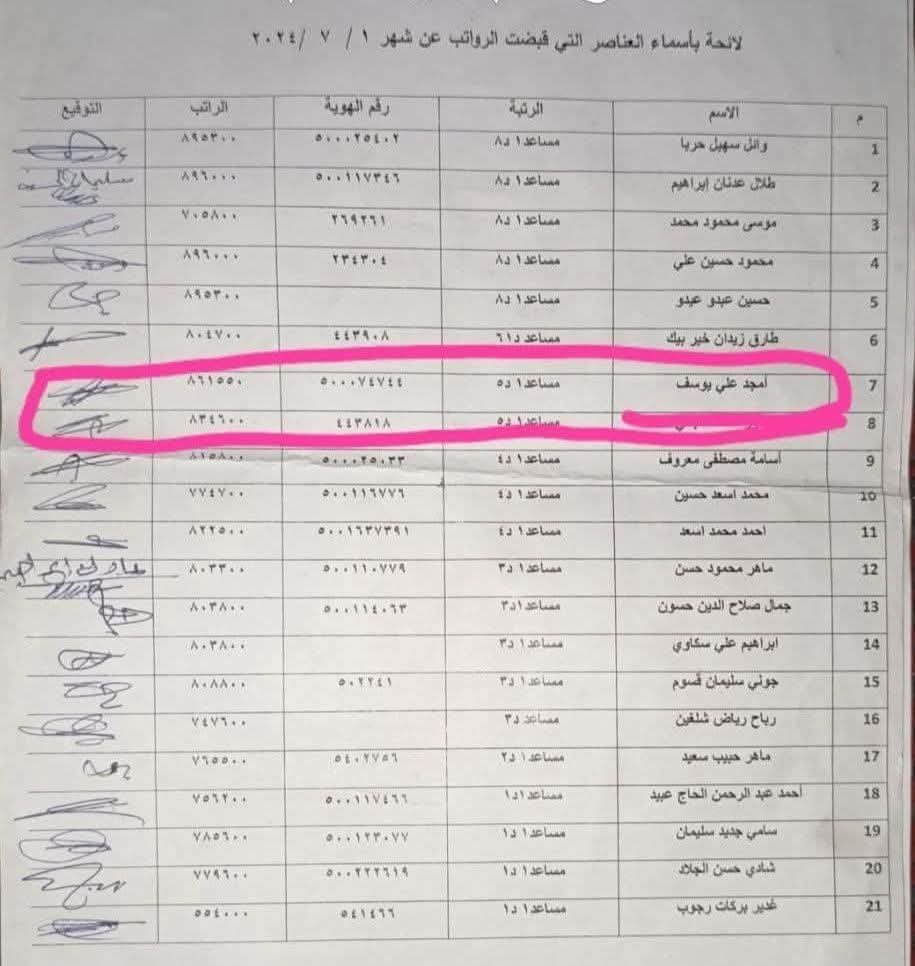 لائحة بأسماء العناصر التي قبضت الرواتب عن شهر ١ / ٧ /٢٠٢٤
م الاسم الرتبة رقم الهوية الراتب التوقيع
1 وائل سهيل حربا مساعد١ د٨ ٥٠٠٠٢٥٤٠٢ ٨٩٥٣٠٠
2 طلال عدنان إبراهيم مساعد١ د٨ ٥٠٠١١٧٣٤٦ ٨٩٦٠٠٠
3 موسى محمود محمد مساعد١ د٨ ٢٦٩٢٦١ ٧٠٥٨٠٠
4 محمود حسين علي مساعد١ د٨ ٢٣٤٣٠٤ ٨٩٦٠٠٠
5 حسين عبدو عيدو مساعد١ د٨ ٨٩٥٣٠٠
6 طارق زيدان خير بيك مساعد د٦١ ٤٤٣٩٠٨ ٨٠٤٧٠٠
7 أمجد علي يوسف مساعد١ د٥ ٥٠٠٠٧٤٧٤٤ ٨٦١٥٥٠
8 مساعد١ د٥ ٤٤٣٨١٨ ٨٣٤٦٠٠
9 أسامة مصطفى معروف مساعد١ د٤ ٥٠٠٠٢٥٠٣٣ ٨١٥٨٠٠
10 محمد اسعد حسين مساعد١ د٤ ٥٠٠١١٦٧٧٦ ٧٧٤٧٠٠
11 احمد محمد اسعد مساعد١ د٤ ٥٠٠١٦٣٧٣٩١ ٨٢٢٥٠٠
12 ماهر محمود حسن مساعد١ د٣ ٥٠٠١١٠٧٧٩ ٨٠٣٣٠٠
13 جمال صلاح الدين حسون مساعد١د٣ ٥٠٠١١٤٠٦٣ ٨٠٣٨٠٠
14 ابراهيم علي سكاوي مساعد١ د٣ ٨٠٣٨٠٠
15 جوني سليمان قسوم مساعد١ د٣ ٥٠٢٢٤١ ٨٠٨٨٠٠
16 رباح رياض شلغين مساعد د٣ ٧٤٧٦٠٠
17 ماهر حبيب سعيد مساعد١ د٢ ٥٤٠٢٧٥٦ ٧٦٥٥٠٠
18 احمد عبد الرحمن الحاج عبيد مساعد١د١ ٥٠٠١١٧٤٦٦ ٧٥٦٢٠٠
19 سامي جديد سليمان مساعد١ د١ ٥٠٠١٢٣٠٧٧ ٧٨٥٦٠٠
20 شادي حسن الجلاد مساعد١ د١ ٥٠٠٢٢٢٦١٩ ٧٧٩٦٠٠
21 غدير بركات رجوب مساعد١ د١ ٥٤١٤٦٦ ٥٥٤٠٠٠